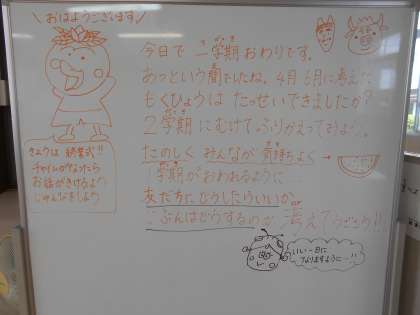 ＼おはようございます／
今日で1学期おわりです。
あっという間でしたね。4月5月に考えた
もくひょうは たっせいできましたか？
2学期にむけてふりかえってみよう。
たのしく みんなが 気持ちよく
1学期がおわれるように
友だちにどうしたらいいか。
じぶんはどうするのか 考えてうごこう!!
きょうは 終業式!!
チャイムがなったら
お話がきけるよう
じゅんびをしよう
いい一日に
なりますように…!!